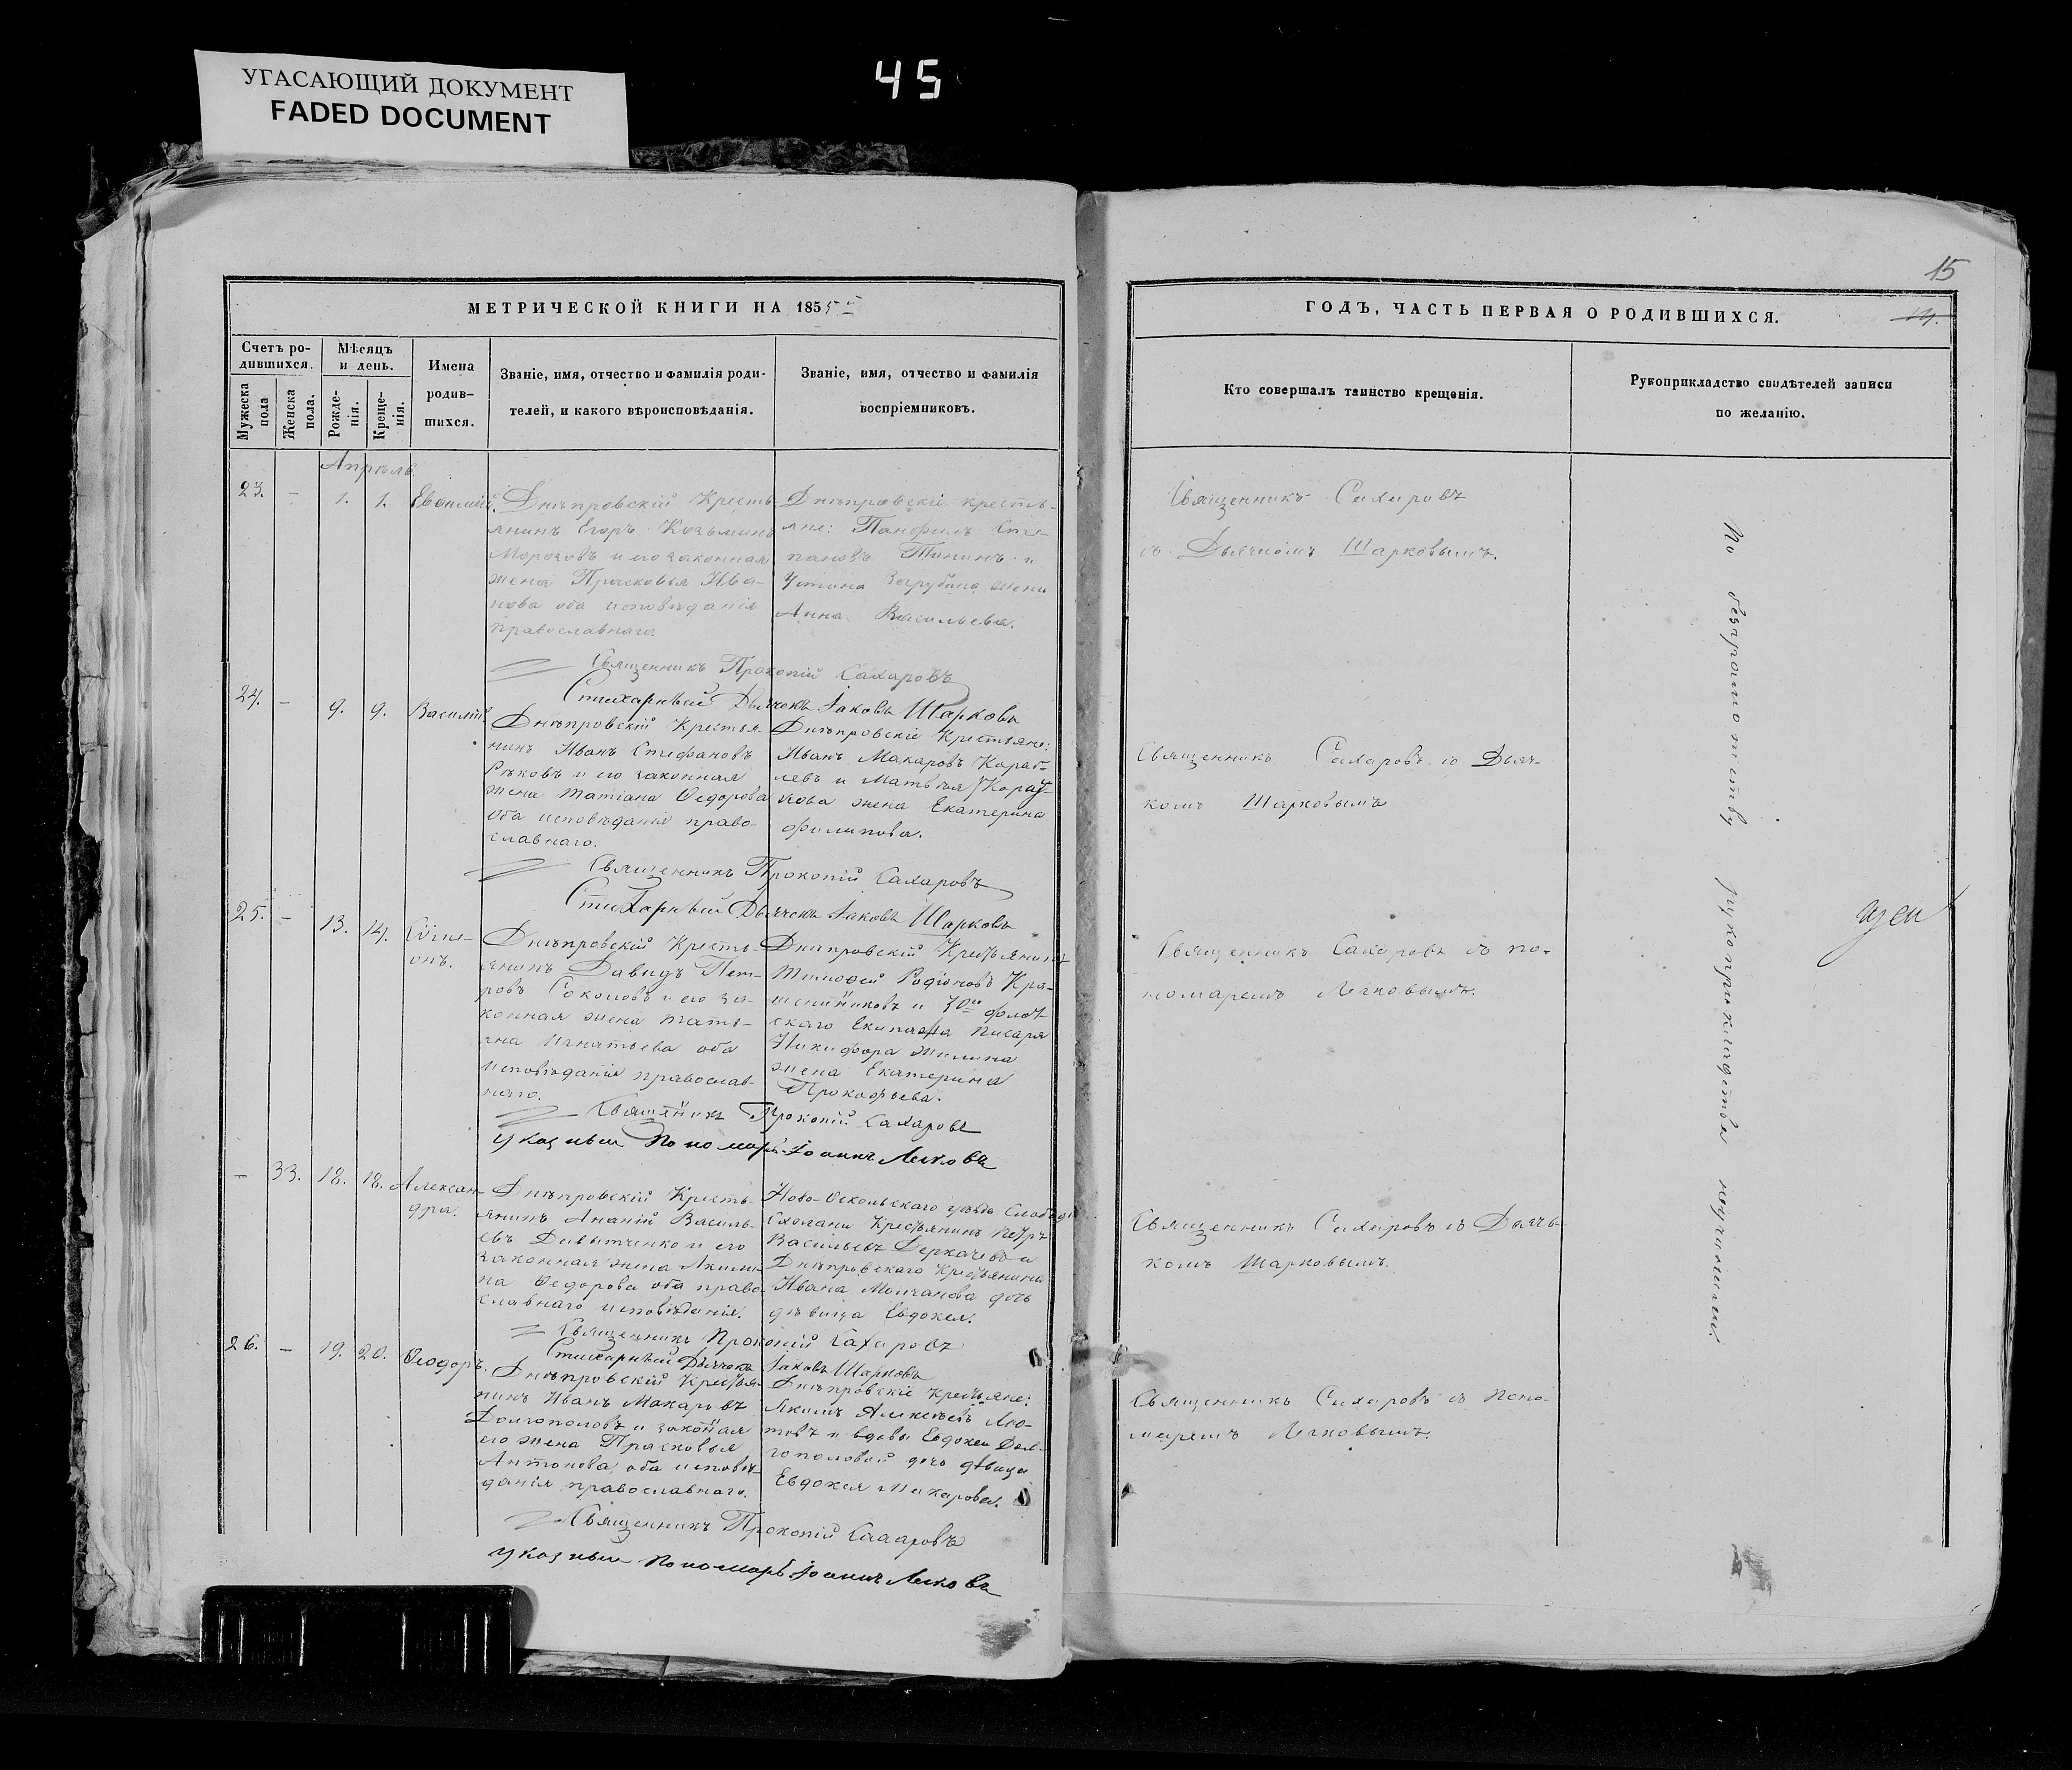 УГАСАЮЩИЙ ДОКУМЕНТ
FADED DOCUMENT
45
МЕТРИЧЕСКОЙ КНИГИ НА 1855
Счетъ ро-
дившихся.
Мужеска пола
Женска пола.
Мѣсяцъ
и день.
Рожде-
нія.
Креще-
нія.
Имена
родив-
шихся.
Званіе, имя, отчество и фамилія роди-
телей, и какого вѣроисповѣданія.
Званіе, имя, отчество и фамилія
воспріемниковъ.
Апрѣль
23. - 1. 1. Евѳимій.
Днѣпровскій Кресть-
янинъ Егоръ Козьминъ
Морозовъ и его законная
жена Прасковья Ива-
нова оба исповѣданія
православнаго.
Днѣпровскіе кресть-
яне: Панфилъ Сте-
пановъ и
Устина Зарубина жена
Анна Васильева.
Священникъ Прокопій Сахаровъ
Стихарный Дьячокъ Іаковъ Шарковъ
24. - 9. 9. Василій
Днѣпровскій Крестья-
нинъ Иванъ Стефановъ
Рѣковъ и его законная
жена Татіана Ѳедорова
оба исповѣданія право-
славнаго.
Днѣпровскіе Крестьяне:
Иванъ Макаровъ Кораб-
левъ и Матвѣя
жена Екатерина
Филипова.
Священникъ Прокопій Сахаровъ
Стихарный Дьячекъ Іаковъ Шарковъ
25. - 13. 14. Сѵме-
онъ.
Днѣпровскій Кресть-
янинъ Давидъ Пет-
ровъ Соколовъ и его за-
конная жена Тать-
яна Игнатьева оба
исповѣданія православ-
наго.
Днѣпровскій Крестьянинъ
Тимоѳей Родіоновъ Кра-
шенинниковъ и флот-
скаго Екипажа писаря
Никифора Жилина
жена Екатерина
Прокофьева.
Священникъ Прокопій Сахаровъ
Указный Пономарь Іоаннъ Лечковъ
- 33. 18. 18. Алексан-
дра.
Днѣпровскій Кресть-
янинъ Ананій Василь-
евъ Давытченко и его
законная жена Акили-
на Ѳедорова оба право-
славнаго исповѣданія.
Ново-Оскольскаго уѣзда Слободы
Крестьянинъ Петръ
Васильевъ Деркачевъ и
Днѣпровскаго Крестьянина
Ивана Молчанова дочь
дѣвица Евдокея.
Священникъ Прокопій Сахаровъ
Стихарный Дьячокъ Іаковъ Шарковъ
26. - 19. 20. Ѳеодоръ.
Днѣпровскій Крестья-
нинъ Иванъ Макаровъ
Долгополовъ и законная
его жена Прасковья
Антонова, оба исповѣ-
данія православнаго.
Днѣпровскіе крестьяне:
Якимъ Алексѣевъ Лю-
товъ и вдовы Евдокеи Дол-
гополовой дочь дѣвица
Евдокея Макарова.
Священникъ Прокопій Сахаровъ
Указный Пономарь Іоаннъ Лечковъ
15
ГОДЪ, ЧАСТЬ ПЕРВАЯ О РОДИВШИХСЯ.
14.
Кто совершалъ таинство крещенія.
Рукоприкладство свидѣтелей записи
по желанію.
Священникъ Сахаровъ
съ Дьячкомъ Шарковымъ.
Священникъ Сахаровъ съ Дьяч-
комъ Шарковымъ
Священникъ Сахаровъ съ по-
номаремъ Лечковымъ.
Священникъ Сахаровъ съ Дьячь-
комъ Шарковымъ.
Священникъ Сахаровъ съ Поно-
маремъ Лечковымъ.
По безграмотству рукоприкладства неучинили.